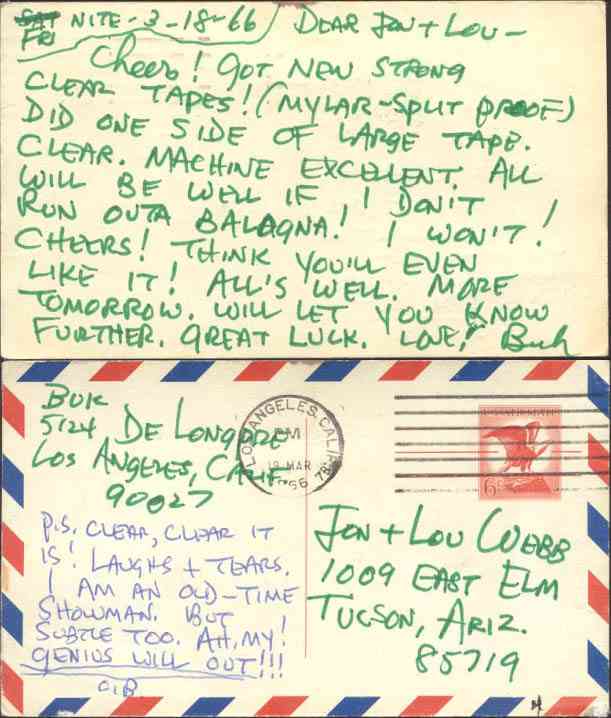 SAT NITE - 3-18-66 DEAR JON + LOU -
FRI
Cheers! GOT NEW STRONG
CLEAR TAPES! (MYLAR-SPLIT PROOF)
DID ONE SIDE OF LARGE TAPE.
CLEAR. MACHINE EXCELLENT. ALL
WILL BE WELL IF I DON'T
RUN OUTA BALAGNA! I WON'T!
CHEERS! THINK YOU'LL EVEN
LIKE IT! ALL'S WELL. MORE
TOMORROW. WILL LET YOU KNOW
FURTHER. GREAT LUCK. LOVE! Buk
BUK
5124 DE LONGPRE
LOS ANGELES, CALIF.
90027
P.S. CLEAR, CLEAR IT
IS! LAUGHS + TEARS.
I AM AN OLD-TIME
SHOWMAN. BUT
SUBTLE TOO. AH, MY!
GENIUS WILL OUT!!!
LOS ANGELES, CALIF.
PM
19 MAR
6¢
JON + LOU WEBB
1009 EAST ELM
TUCSON, ARIZ.
85719